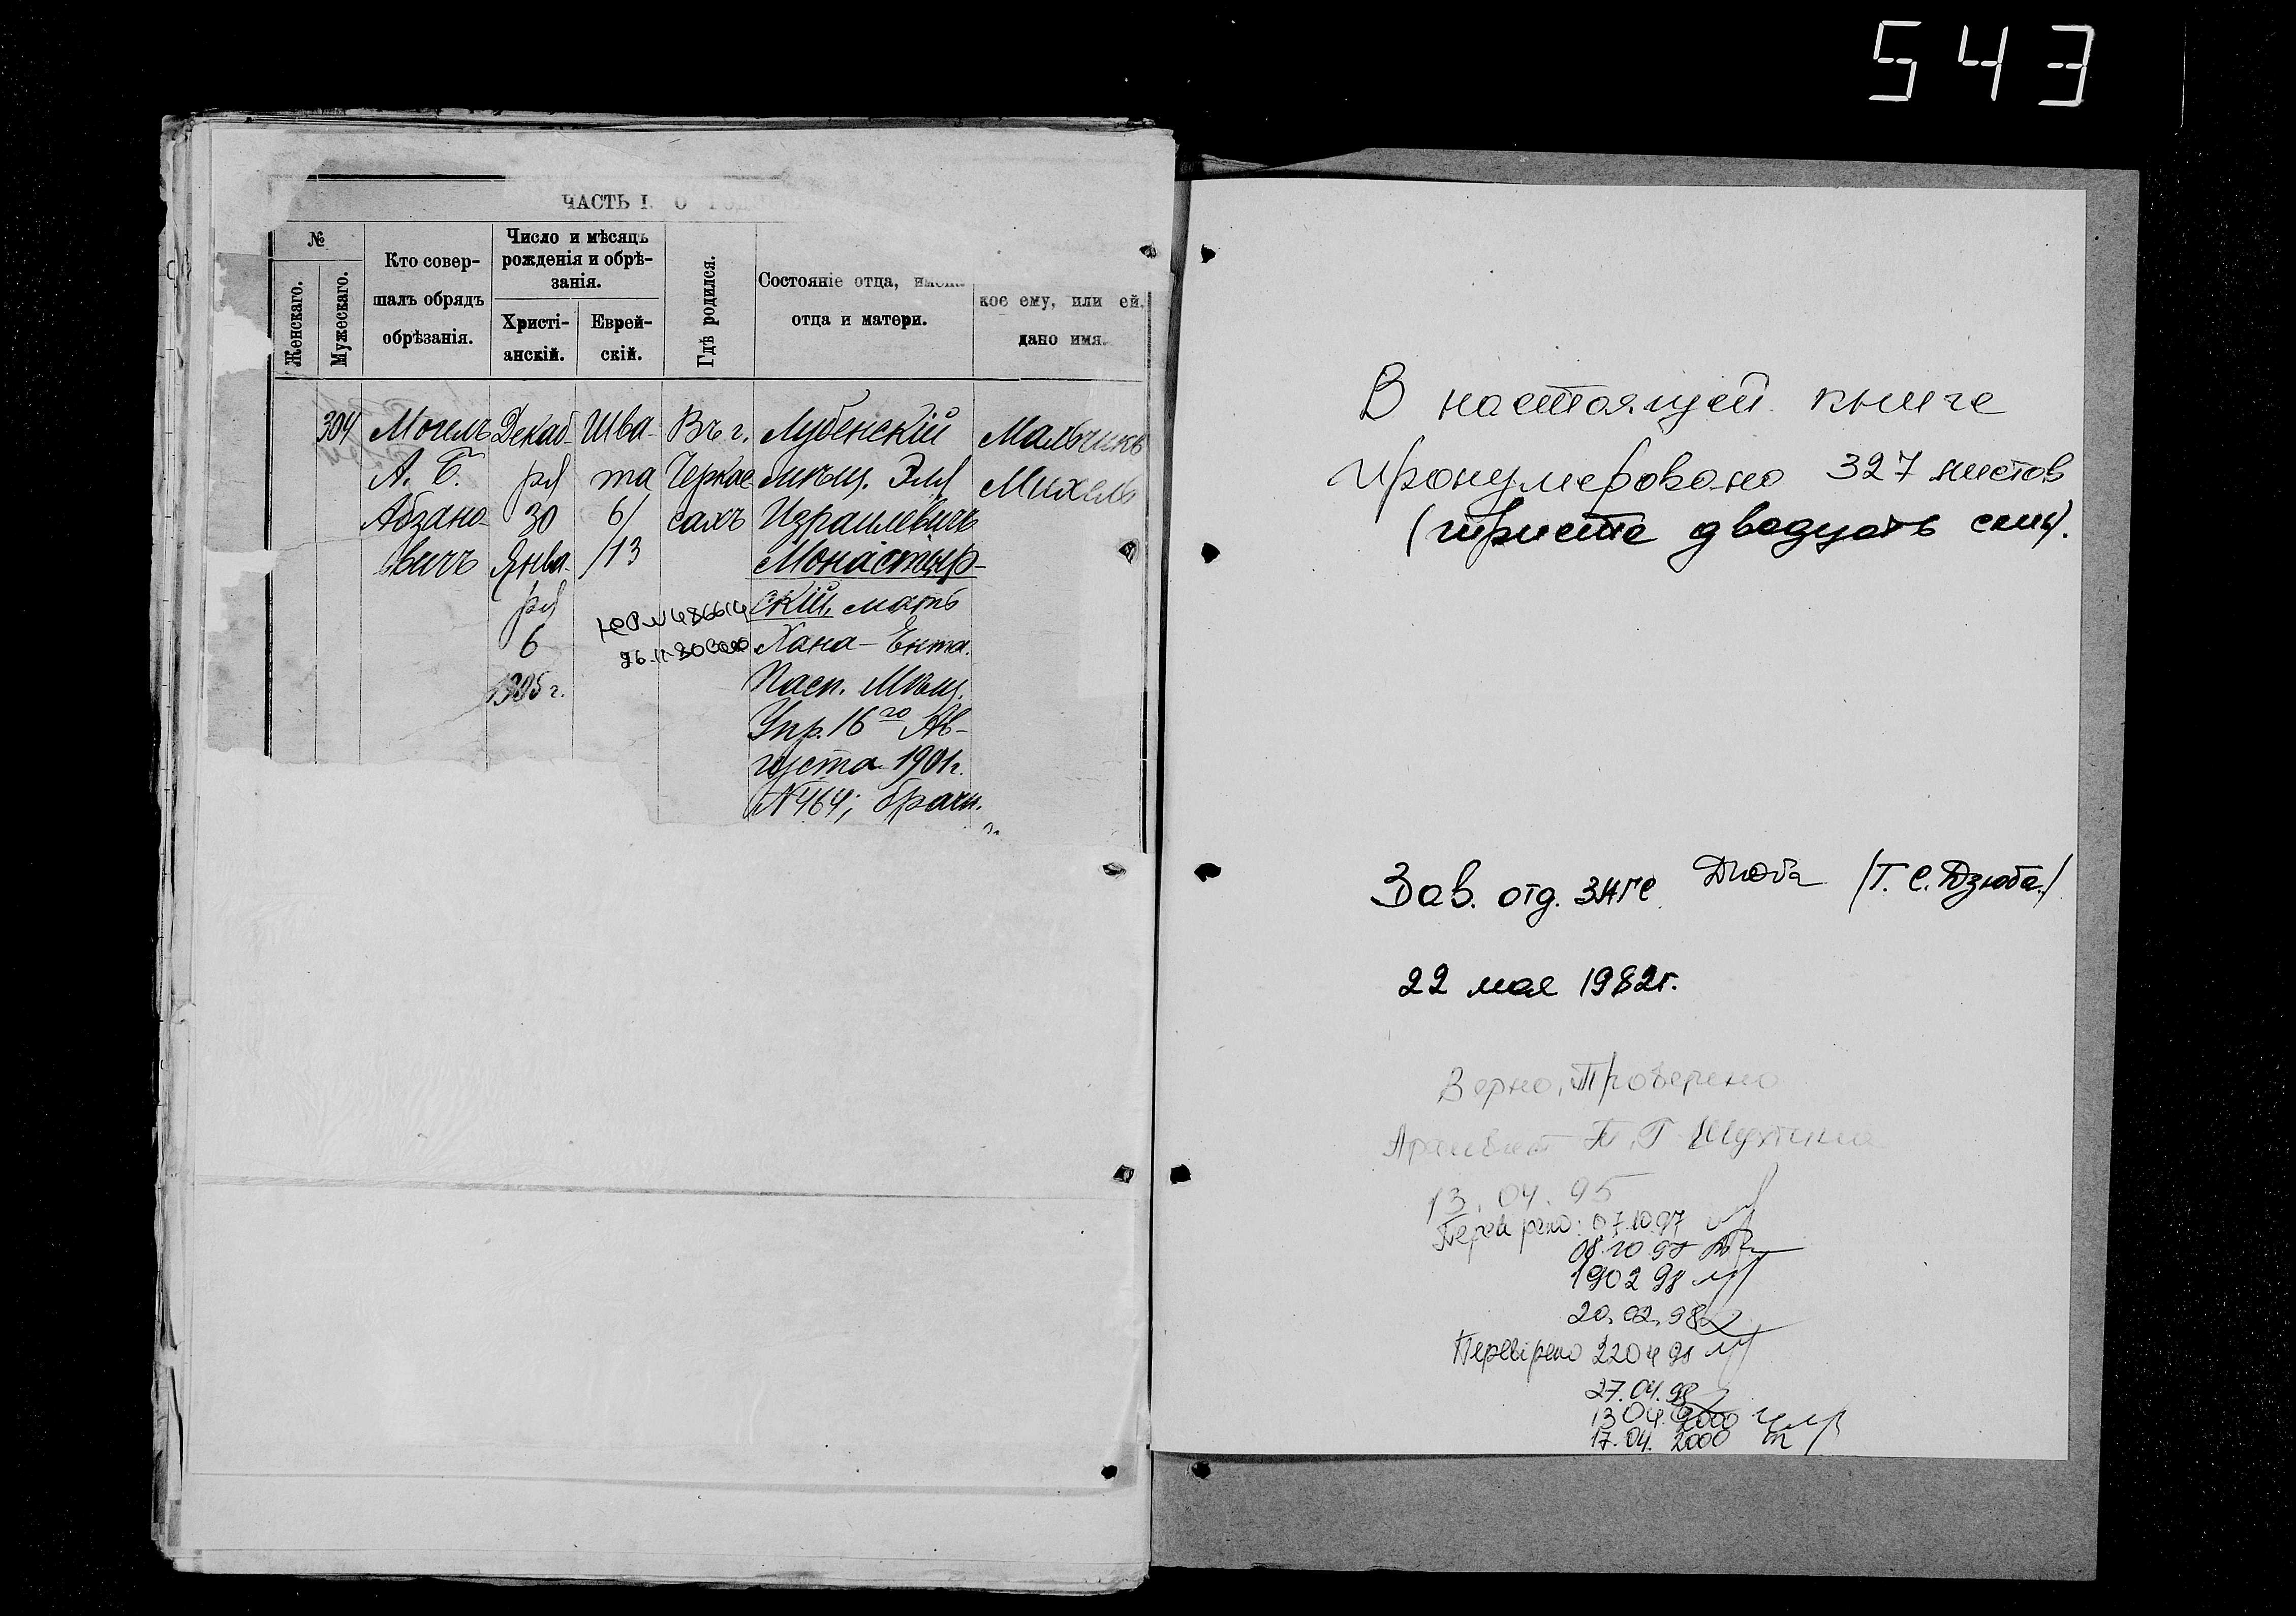 543
ЧАСТЬ I. О
№
Женскаго.
Мужескаго.
Кто совер-
шалъ обрядъ
обрѣзанія.
Число и мѣсяцъ
рожденія и обрѣ-
занія.
Христі-
анскій.
Еврей-
скій.
Гдѣ родился.
Состояніе отца, имена
отца и матери.
кое ему, или ей
дано имя.
304
Могелъ
А. Б.
Абзано-
вичъ
Декаб-
ря
30
Янва-
ря
6
1905 г.
Шва-
та
6/
/13
Въ г.
Черкас
сахъ
Лубенскій
мѣщ. Эля
Израилевичъ
Монастыр-
скій, мать
Хана - Ента.
Пасп. Мѣщ.
Упр. 16го Ав-
густа 1901г.
№464; брачн.
Мальчикъ
Михель
В настоящей книге
пронумеровано 327 листов
(триста двадцать семь).
Зав. отд. ЗАГС (Т. С. Дзюба.)
22 мая 1982г.
Верно, Проверено
Архивист
13.04.95
07.10.97
08.10.97
19 02 98
20.02.98
Перевірено 22 04 98
27.04.98
13 04. 2000
17.04. 2000